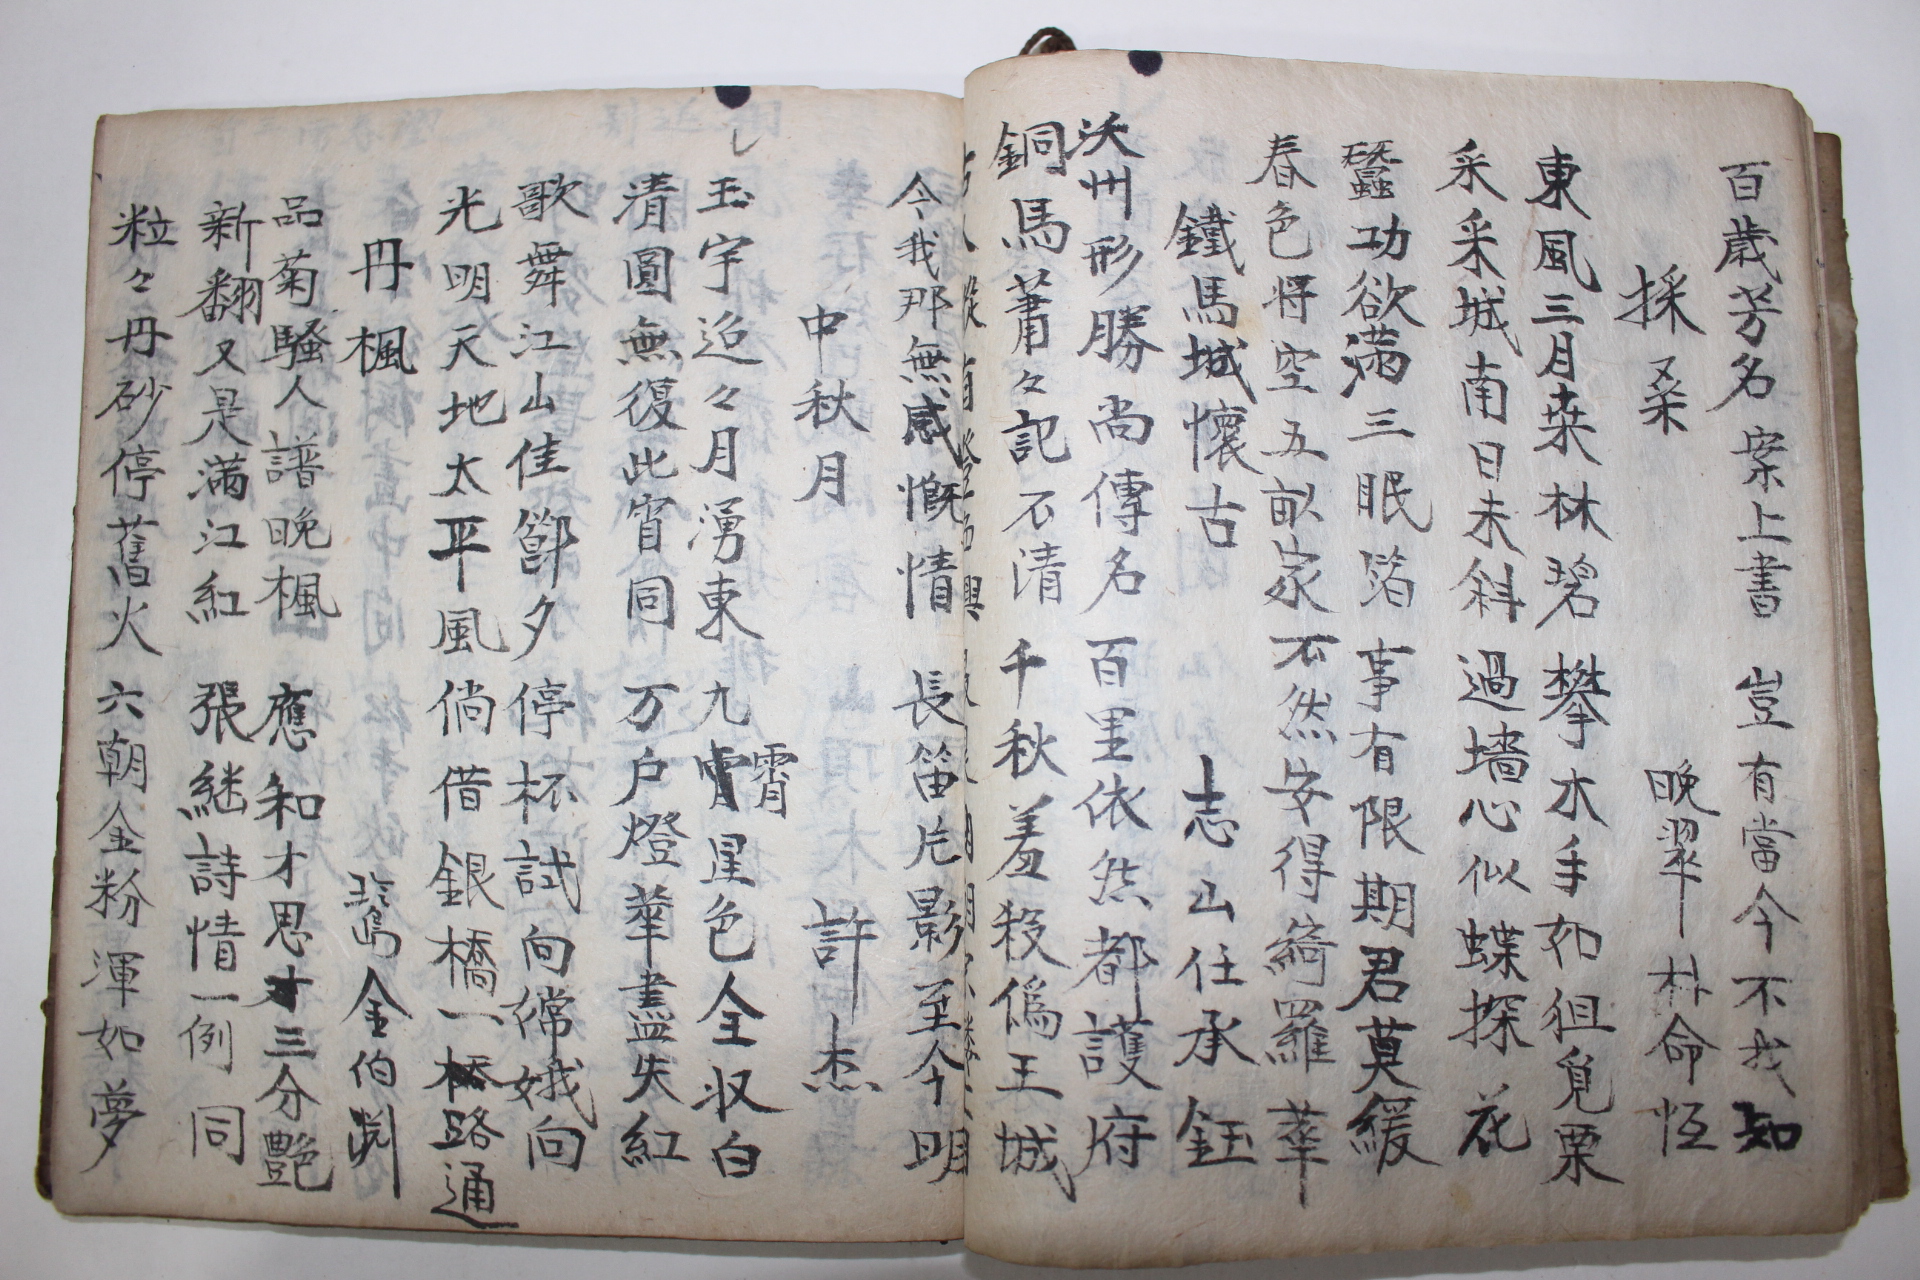 百歲芳名案上書 豈有當今不我知
採桑 晩翠 朴命恒
東風三月桒林碧 攀木手如徂覓栗
采采城南日未斜 過墻心似蝶探花
蠶功欲滿三眠箔 事有限期君莫緩
春色將空五畝家 不然安得綺羅華
鐵馬城懷古 志山 任承鈺
沃州形勝尚傳名 百里依然都護府
銅馬萧々記不清 千秋羞殺僞王城
今我那無感慨情 長笛片影至今明
中秋月 許杰
玉宇迢々月湧東 九霄星色全収白
清圓無復此宵同 万户燈華盡失紅
歌舞江山佳節夕 停杯試向嫦娥向
光明天地太平風 倘借銀橋一路通
丹楓 鷺島 金伯
品菊騷人譜晩楓 應和才思三分艷
新翻又是滿江紅 張継詩情一例同
粒々丹砂停舊火 六朝金粉渾如夢